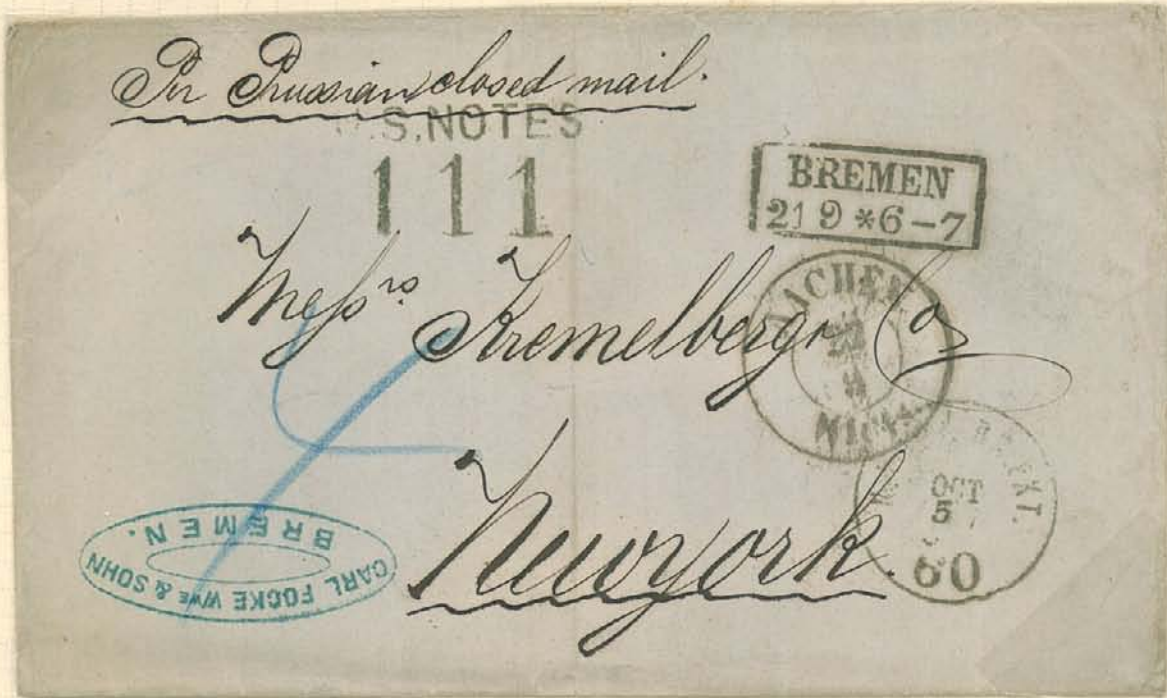 Per Prussian closed mail.
U.S.NOTES
111
BREMEN
21 9 *6-7
Messrs Kremelberg & Co
AACHEN
OCT
5
60
New york.
CARL FOCKE WWE & SOHN
BREMEN.